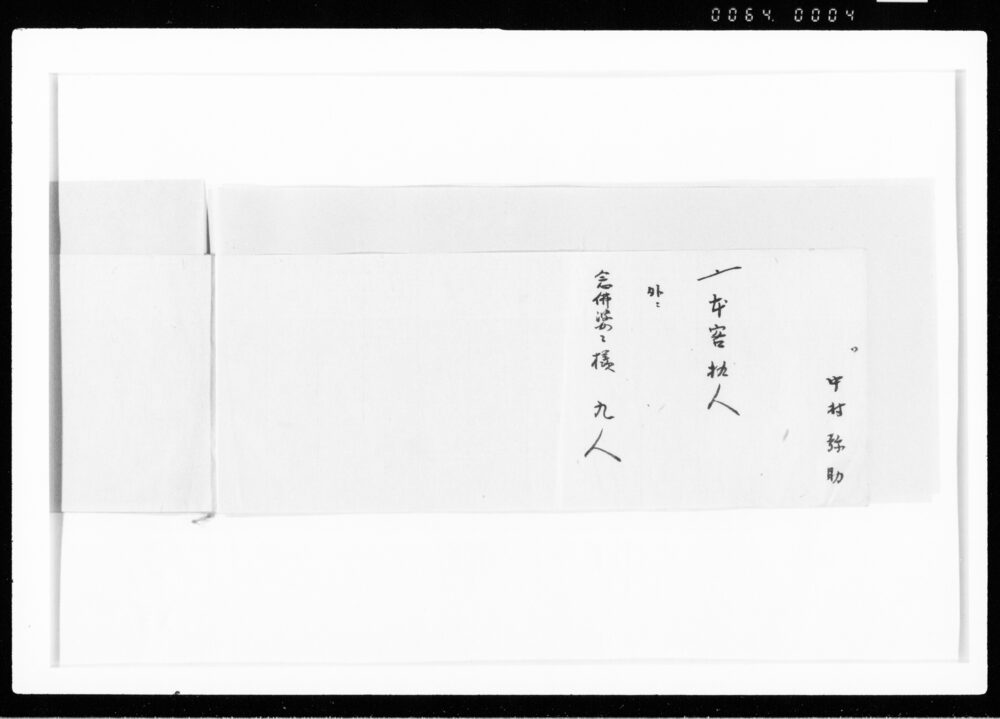 0064.0004
中村弥助
一本客拾人
外ニ
念佛婆々様 九人